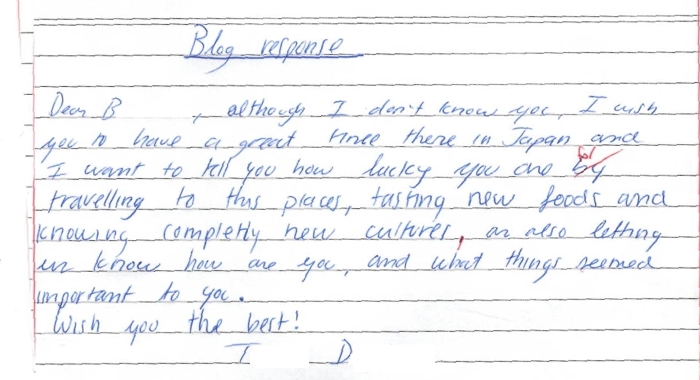 Blog response
Dear B , although I don't know you, I wish
you to have a great time there in Japan and
I want to tell you how lucky you are by for
travelling to this places, tasting new foods and
knowing completly new cultures, an also letting
us know how are you, and what things seemed
important to you.
Wish you the best!
I D